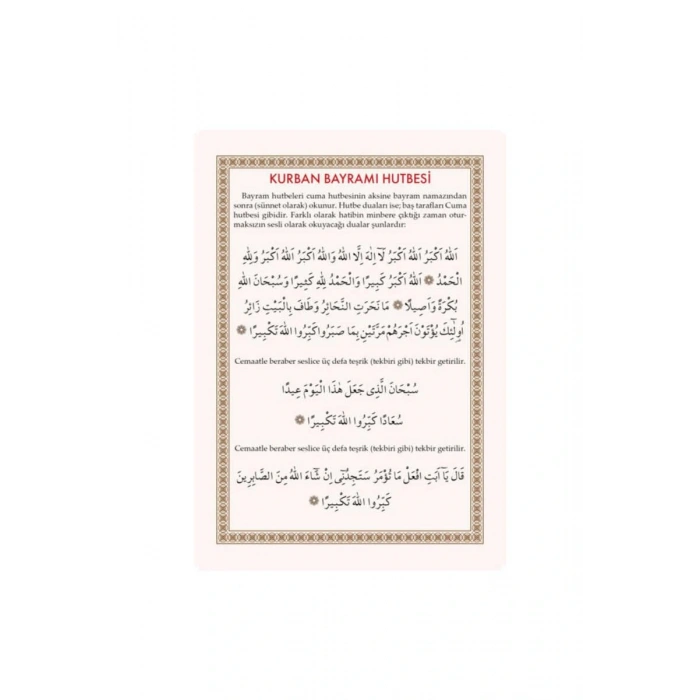 KURBAN BAYRAMI HUTBESİ
Bayram hutbeleri cuma hutbesinin aksine bayram namazından
sonra (sünnet olarak) okunur. Hutbe duaları ise; baş tarafları Cuma
hutbesi gibidir. Farklı olarak hatibin minbere çıktığı zaman otur-
maksızın sesli olarak okuyacağı dualar şunlardır:
اَللهُ اَكْبَرُ اَللهُ اَكْبَرُ لَآ اِلٰهَ اِلَّا اللهُ وَاللهُ اَكْبَرُ اَللهُ اَكْبَرُ وَلِلّٰهِ
الْحَمْدُ ۞ اَللهُ اَكْبَرُ كَبِيرًا وَالْحَمْدُ لِلّٰهِ كَثِيرًا وَسُبْحَانَ اللهِ
بُكْرَةً وَاَصِيلًا ۞ مَا نَحَرَتِ النَّحَائِرُ وَطَافَ بِالْبَيْتِ زَائِرُ
اُولٰٓئِكَ يُؤْتَوْنَ اَجْرَهُمْ مَرَّتَيْنِ بِمَا صَبَرُوا كَبِّرُوا اللهَ تَكْبِيرًا ۞
Cemaatle beraber seslice üç defa teşrik (tekbiri gibi) tekbir getirilir.
سُبْحَانَ الَّذِى جَعَلَ هٰذَا الْيَوْمَ عِيدًا
سُعَادًا كَبِّرُوا اللهَ تَكْبِيرًا ۞
Cemaatle beraber seslice üç defa teşrik (tekbiri gibi) tekbir getirilir.
قَالَ يَآ اَبَتِ افْعَلْ مَا تُؤْمَرُ سَتَجِدُنِٓى اِنْ شَٓاءَ اللهُ مِنَ الصَّابِرِينَ
كَبِّرُوا اللهَ تَكْبِيرًا ۞